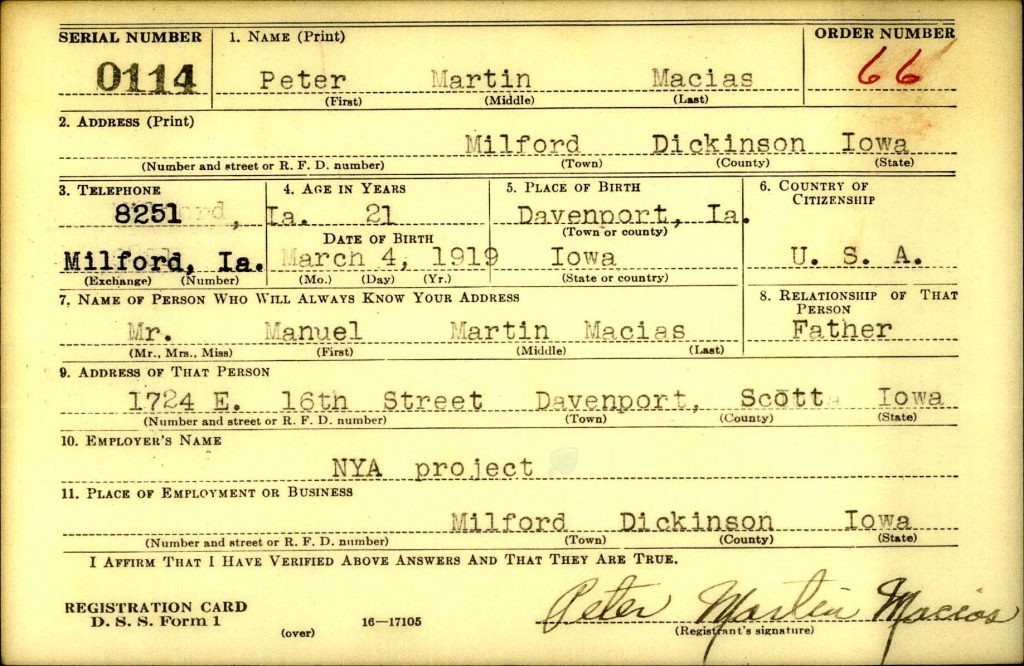 SERIAL NUMBER 1. NAME (Print) ORDER NUMBER
0114 Peter Martin Macias 66
(First) (Middle) (Last)
2. ADDRESS (Print)
Milford Dickinson Iowa
(Number and street or R. F. D. number) (Town) (County) (State)
3. TELEPHONE 4. AGE IN YEARS 5. PLACE OF BIRTH 6. COUNTRY OF CITIZENSHIP
8251 , Ia. 21 Davenport, Ia.
DATE OF BIRTH (Town or county)
Milford, Ia. March 4, 1919 Iowa U. S. A.
(Exchange) (Number) (Mo.) (Day) (Yr.) (State or country)
7. NAME OF PERSON WHO WILL ALWAYS KNOW YOUR ADDRESS 8. RELATIONSHIP OF THAT PERSON
Mr. Manuel Martin Macias Father
(Mr., Mrs., Miss) (First) (Middle) (Last)
9. ADDRESS OF THAT PERSON
1724 E. 16th Street Davenport, Scott Iowa
(Number and street or R. F. D. number) (Town) (County) (State)
10. EMPLOYER'S NAME
NYA project
11. PLACE OF EMPLOYMENT OR BUSINESS
Milford Dickinson Iowa
(Number and street or R. F. D. number) (Town) (County) (State)
I AFFIRM THAT I HAVE VERIFIED ABOVE ANSWERS AND THAT THEY ARE TRUE.
REGISTRATION CARD
D. S. S. Form 1 (over) 16—17105 Peter Martin Macias
(Registrant's signature)